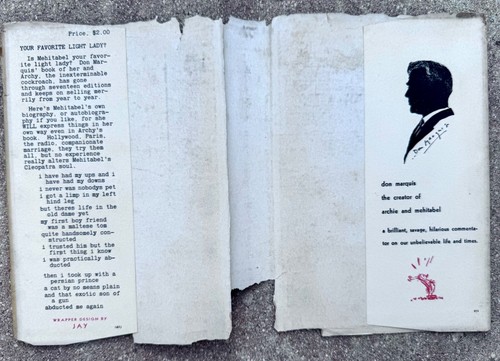 Price, $2.00
YOUR FAVORITE LIGHT LADY?
Is Mehitabel your favor-
ite light lady? Don Mar-
quis' book of her and
Archy, the inexterminable
cockroach, has gone
through seventeen editions
and keeps on selling mer-
rily from year to year.
Here's Mehitabel's own
biography, or autobiogra-
phy if you like, for she
WILL express things in her
own way even in Archy's
book. Hollywood, Paris,
the radio, companionate
marriage, they try them
all, but no experience
really alters Mehitabel's
Cleopatra soul.
i have had my ups and i
have had my downs
i never was nobodys pet
i got a limp in my left
hind leg
but theres life in the
old dame yet
my first boy friend
was a maltese tom
quite handsomely con-
structed
i trusted him but the
first thing i know
i was practically ab-
ducted
then i took up with a
persian prince
a cat by no means plain
and that exotic son of
a gun
abducted me again
WRAPPER DESIGN BY
JAY
Don Marquis
don marquis
the creator of
archie and mehitabel
a brilliant, savage, hilarious commenta-
tor on our unbelievable life and times.